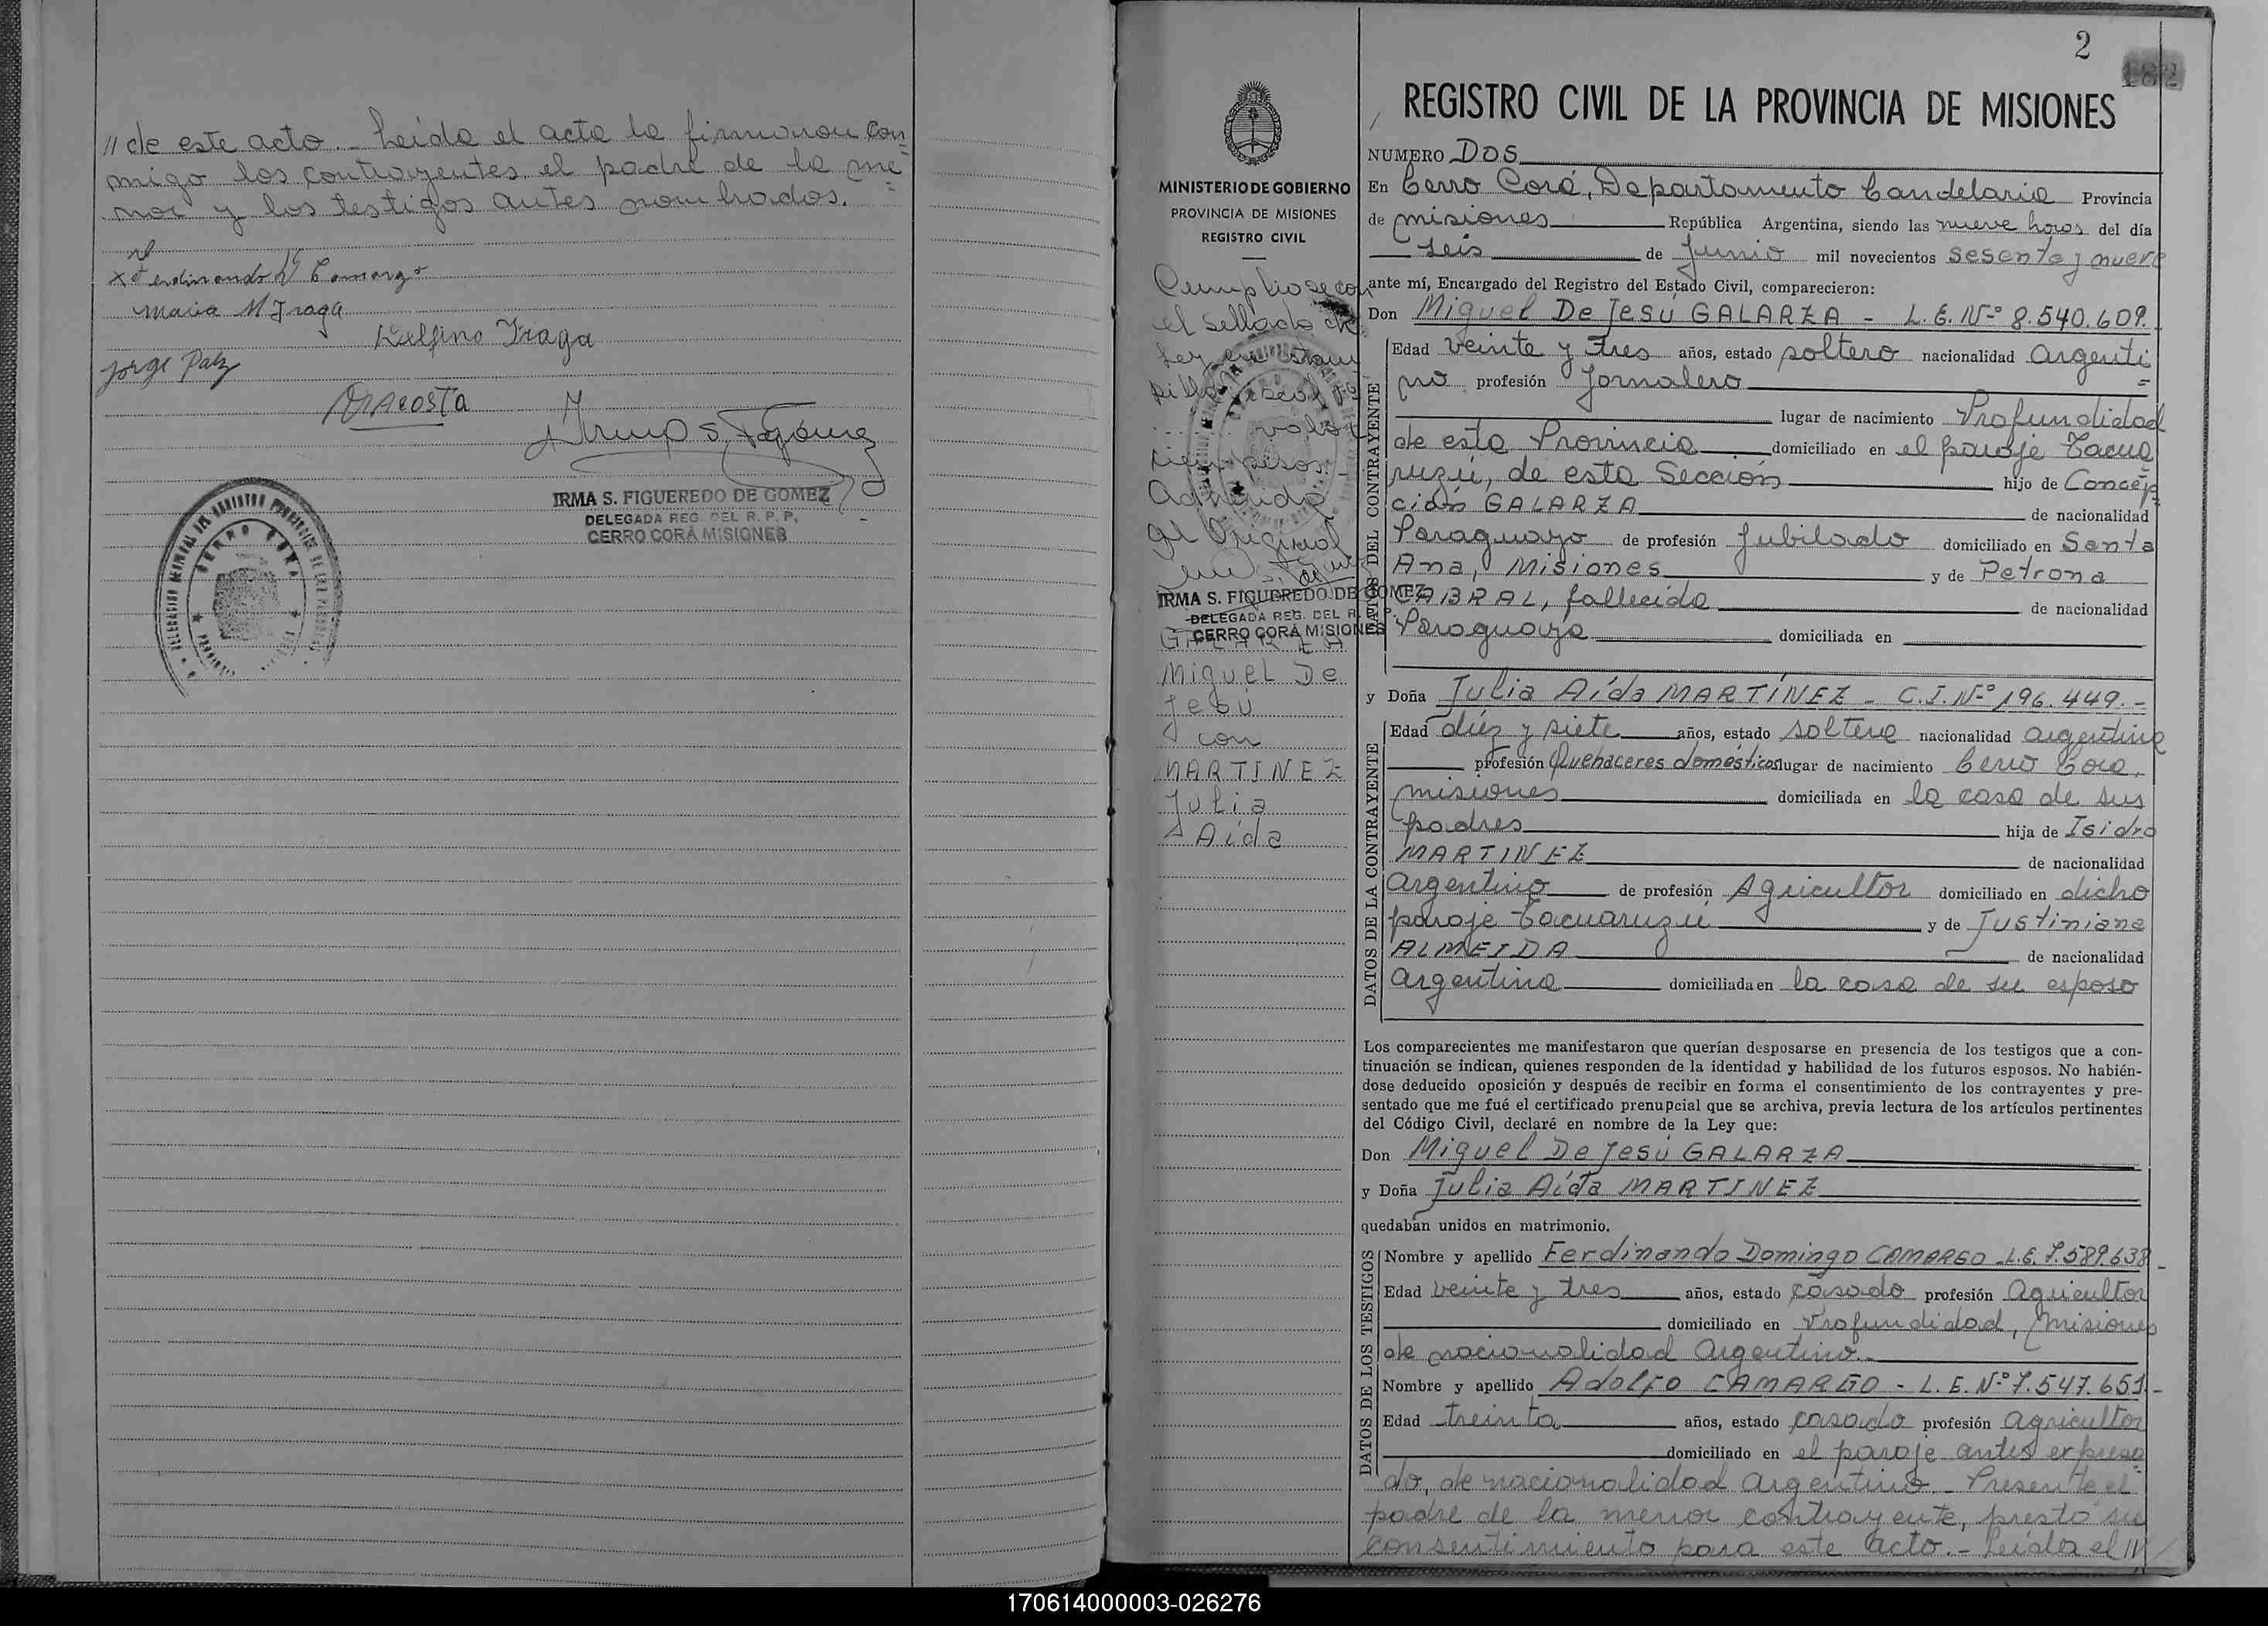 // de este acto.- Leida el acta la firmaron con=
migo los contrayentes, el padre de la me=
nor y los testigos antes nombrados.
Maria M Fraga
Delfino Fraga
Jorge Paz
Acosta
IRMA S. FIGUEREDO DE GOMEZ
DELEGADA REG. DEL R. P. P.
CERRO CORÁ MISIONES
CERRO CORÁ
2
182
REGISTRO CIVIL DE LA PROVINCIA DE MISIONES
MINISTERIO DE GOBIERNO
PROVINCIA DE MISIONES
REGISTRO CIVIL
Cumplio se con
el sellado de
Ley
valor
cien pesos.
Adherida
al Original
IRMA S. FIGUEREDO DE GOMEZ
DELEGADA REG. DEL R. P. P.
CERRO CORÁ MISIONES
GALARZA
Miguel De
Jesú
con
MARTINEZ
Julia
Aída
NUMERO DOS
En Cerro Corá, Departamento Candelaria Provincia
de Misiones República Argentina, siendo las nueve horas del día
seis de Junio mil novecientos sesenta y nueve
ante mí, Encargado del Registro del Estado Civil, comparecieron:
Don Miguel De Jesú GALARZA - L.E. Nº 8.540.609.
DATOS DEL CONTRAYENTE
Edad veinte y tres años, estado soltero nacionalidad Argenti=
no profesión Jornalero
lugar de nacimiento Profundidad
de esta Provincia domiciliado en el paraje Tacua
ruzú, de esta Sección hijo de Concep=
ción GALARZA de nacionalidad
Paraguayo de profesión Jubilado domiciliado en Santa
Ana, Misiones y de Petrona
CABRAL, fallecida de nacionalidad
Paraguaya domiciliada en
y Doña Julia Aída MARTÍNEZ - C.I. Nº 196.449.-
DATOS DE LA CONTRAYENTE
Edad diéz y siete años, estado soltera nacionalidad argentina
profesión Quehaceres domésticos lugar de nacimiento Cerro Corá,
Misiones domiciliada en la casa de sus
padres hija de Isidro
MARTINEZ de nacionalidad
Argentino de profesión Agricultor domiciliado en dicho
paraje Tacuaruzú y de Justiniana
ALMEIDA de nacionalidad
argentina domiciliada en la casa de su esposo
Los comparecientes me manifestaron que querían desposarse en presencia de los testigos que a con-
tinuación se indican, quienes responden de la identidad y habilidad de los futuros esposos. No habién-
dose deducido oposición y después de recibir en forma el consentimiento de los contrayentes y pre-
sentado que me fué el certificado prenupcial que se archiva, previa lectura de los artículos pertinentes
del Código Civil, declaré en nombre de la Ley que:
Don Miguel De Jesú GALARZA
y Doña Julia Aída MARTINEZ
quedaban unidos en matrimonio.
DATOS DE LOS TESTIGOS
Nombre y apellido Ferdinando Domingo CAMARGO - L.E. 7.589.638-
Edad veinte y tres años, estado casado profesión Agricultor
domiciliado en Profundidad, Misiones
de nacionalidad Argentino.-
Nombre y apellido Adolfo CAMARGO - L.E. Nº 7.547.651-
Edad treinta años, estado casado profesión agricultor
domiciliado en el paraje antes expresa=
do, de nacionalidad Argentino.- Presente el
padre de la menor contrayente, prestó su
consentimiento para este acto.- Leida el //
170614000003-026276